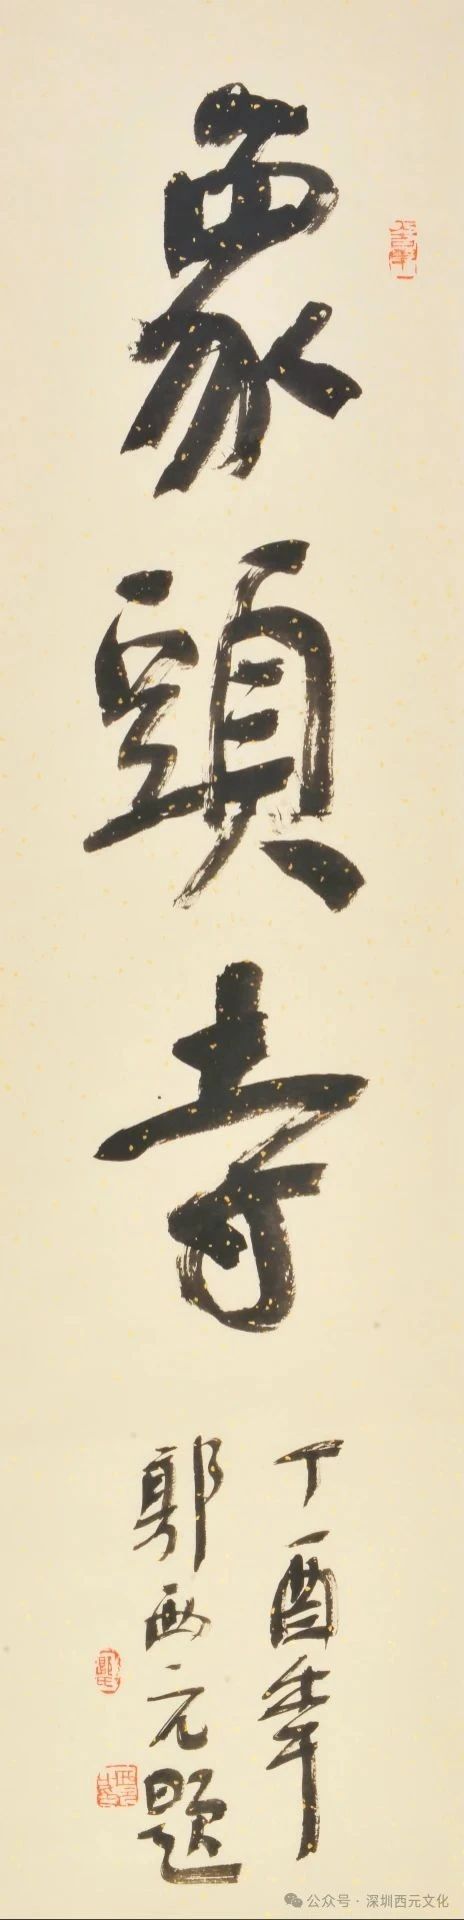 象頭寺
丁酉年
郭西元題
公众号·深圳西元文化